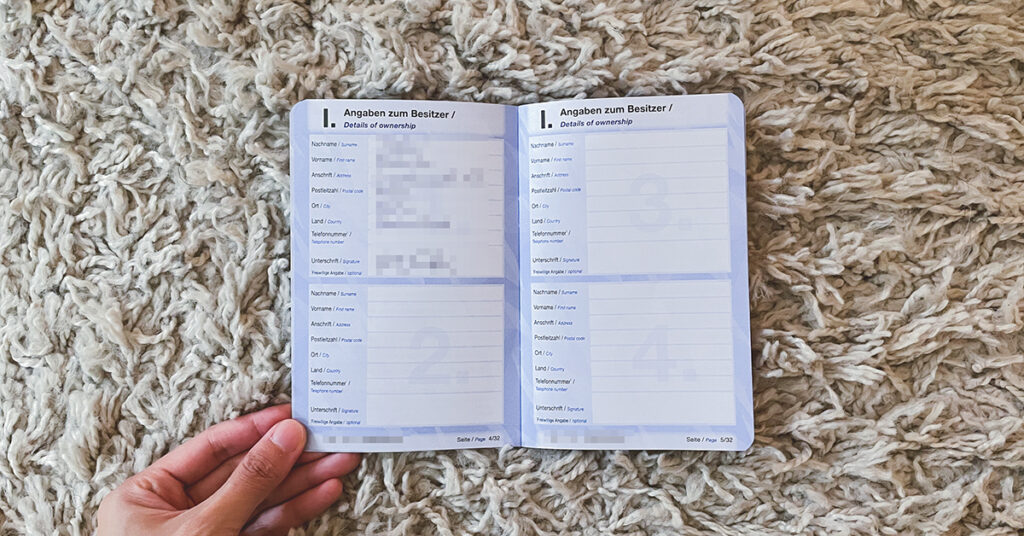 I. Angaben zum Besitzer /
Details of ownership
Nachname / Surname
Vorname / First name
Anschrift / Address
Postleitzahl / Postal code
Ort / City
Land / Country
Telefonnummer /
Telephone number
Unterschrift / Signature
Freiwillige Angabe / optional
Nachname / Surname
Vorname / First name
Anschrift / Address
Postleitzahl / Postal code
Ort / City
Land / Country
Telefonnummer /
Telephone number
2.
Unterschrift / Signature
Freiwillige Angabe / optional
Seite / Page 4/32
I. Angaben zum Besitzer /
Details of ownership
Nachname / Surname
Vorname / First name
Anschrift / Address
Postleitzahl / Postal code
Ort / City
Land / Country
Telefonnummer /
Telephone number
3.
Unterschrift / Signature
Freiwillige Angabe / optional
Nachname / Surname
Vorname / First name
Anschrift / Address
Postleitzahl / Postal code
Ort / City
Land / Country
Telefonnummer /
Telephone number
4.
Unterschrift / Signature
Freiwillige Angabe / optional
Seite / Page 5/32